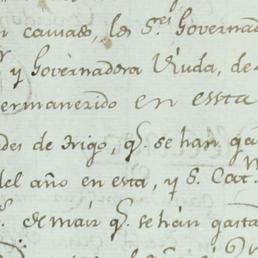 n causas, los S.res Governad
y Governadora Viuda, de
ermanerido en essta
des de trigo, q.e se han ga
del año en esta, y S. Cat.
de maiz q.e se hán gasta